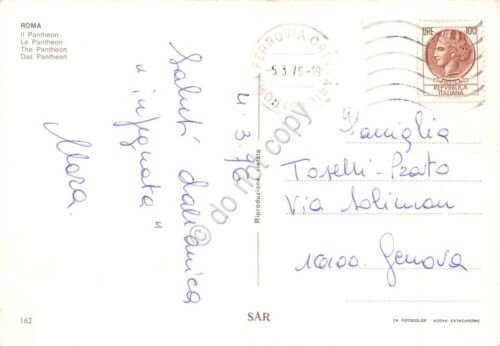 ROMA
Il Pantheon
Le Pantheon
The Pantheon
Das Pantheon
4.3.76
Saluti dall'amica
"impegnata"
Mara.
FERROVIA
ROMA
5.3.76-19
LIRE 100
REPVBBLICA
ITALIANA
Famiglia
Toselli-Prato
Via Soliman
16100. Genova
Riproduzione vietata
© do not copy
162
SAR
CA FOTOCOLOR - KODAK EKTACHROME